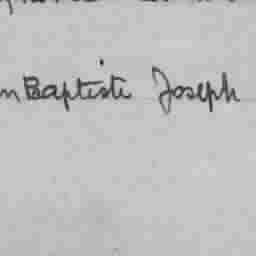 n Baptiste Joseph